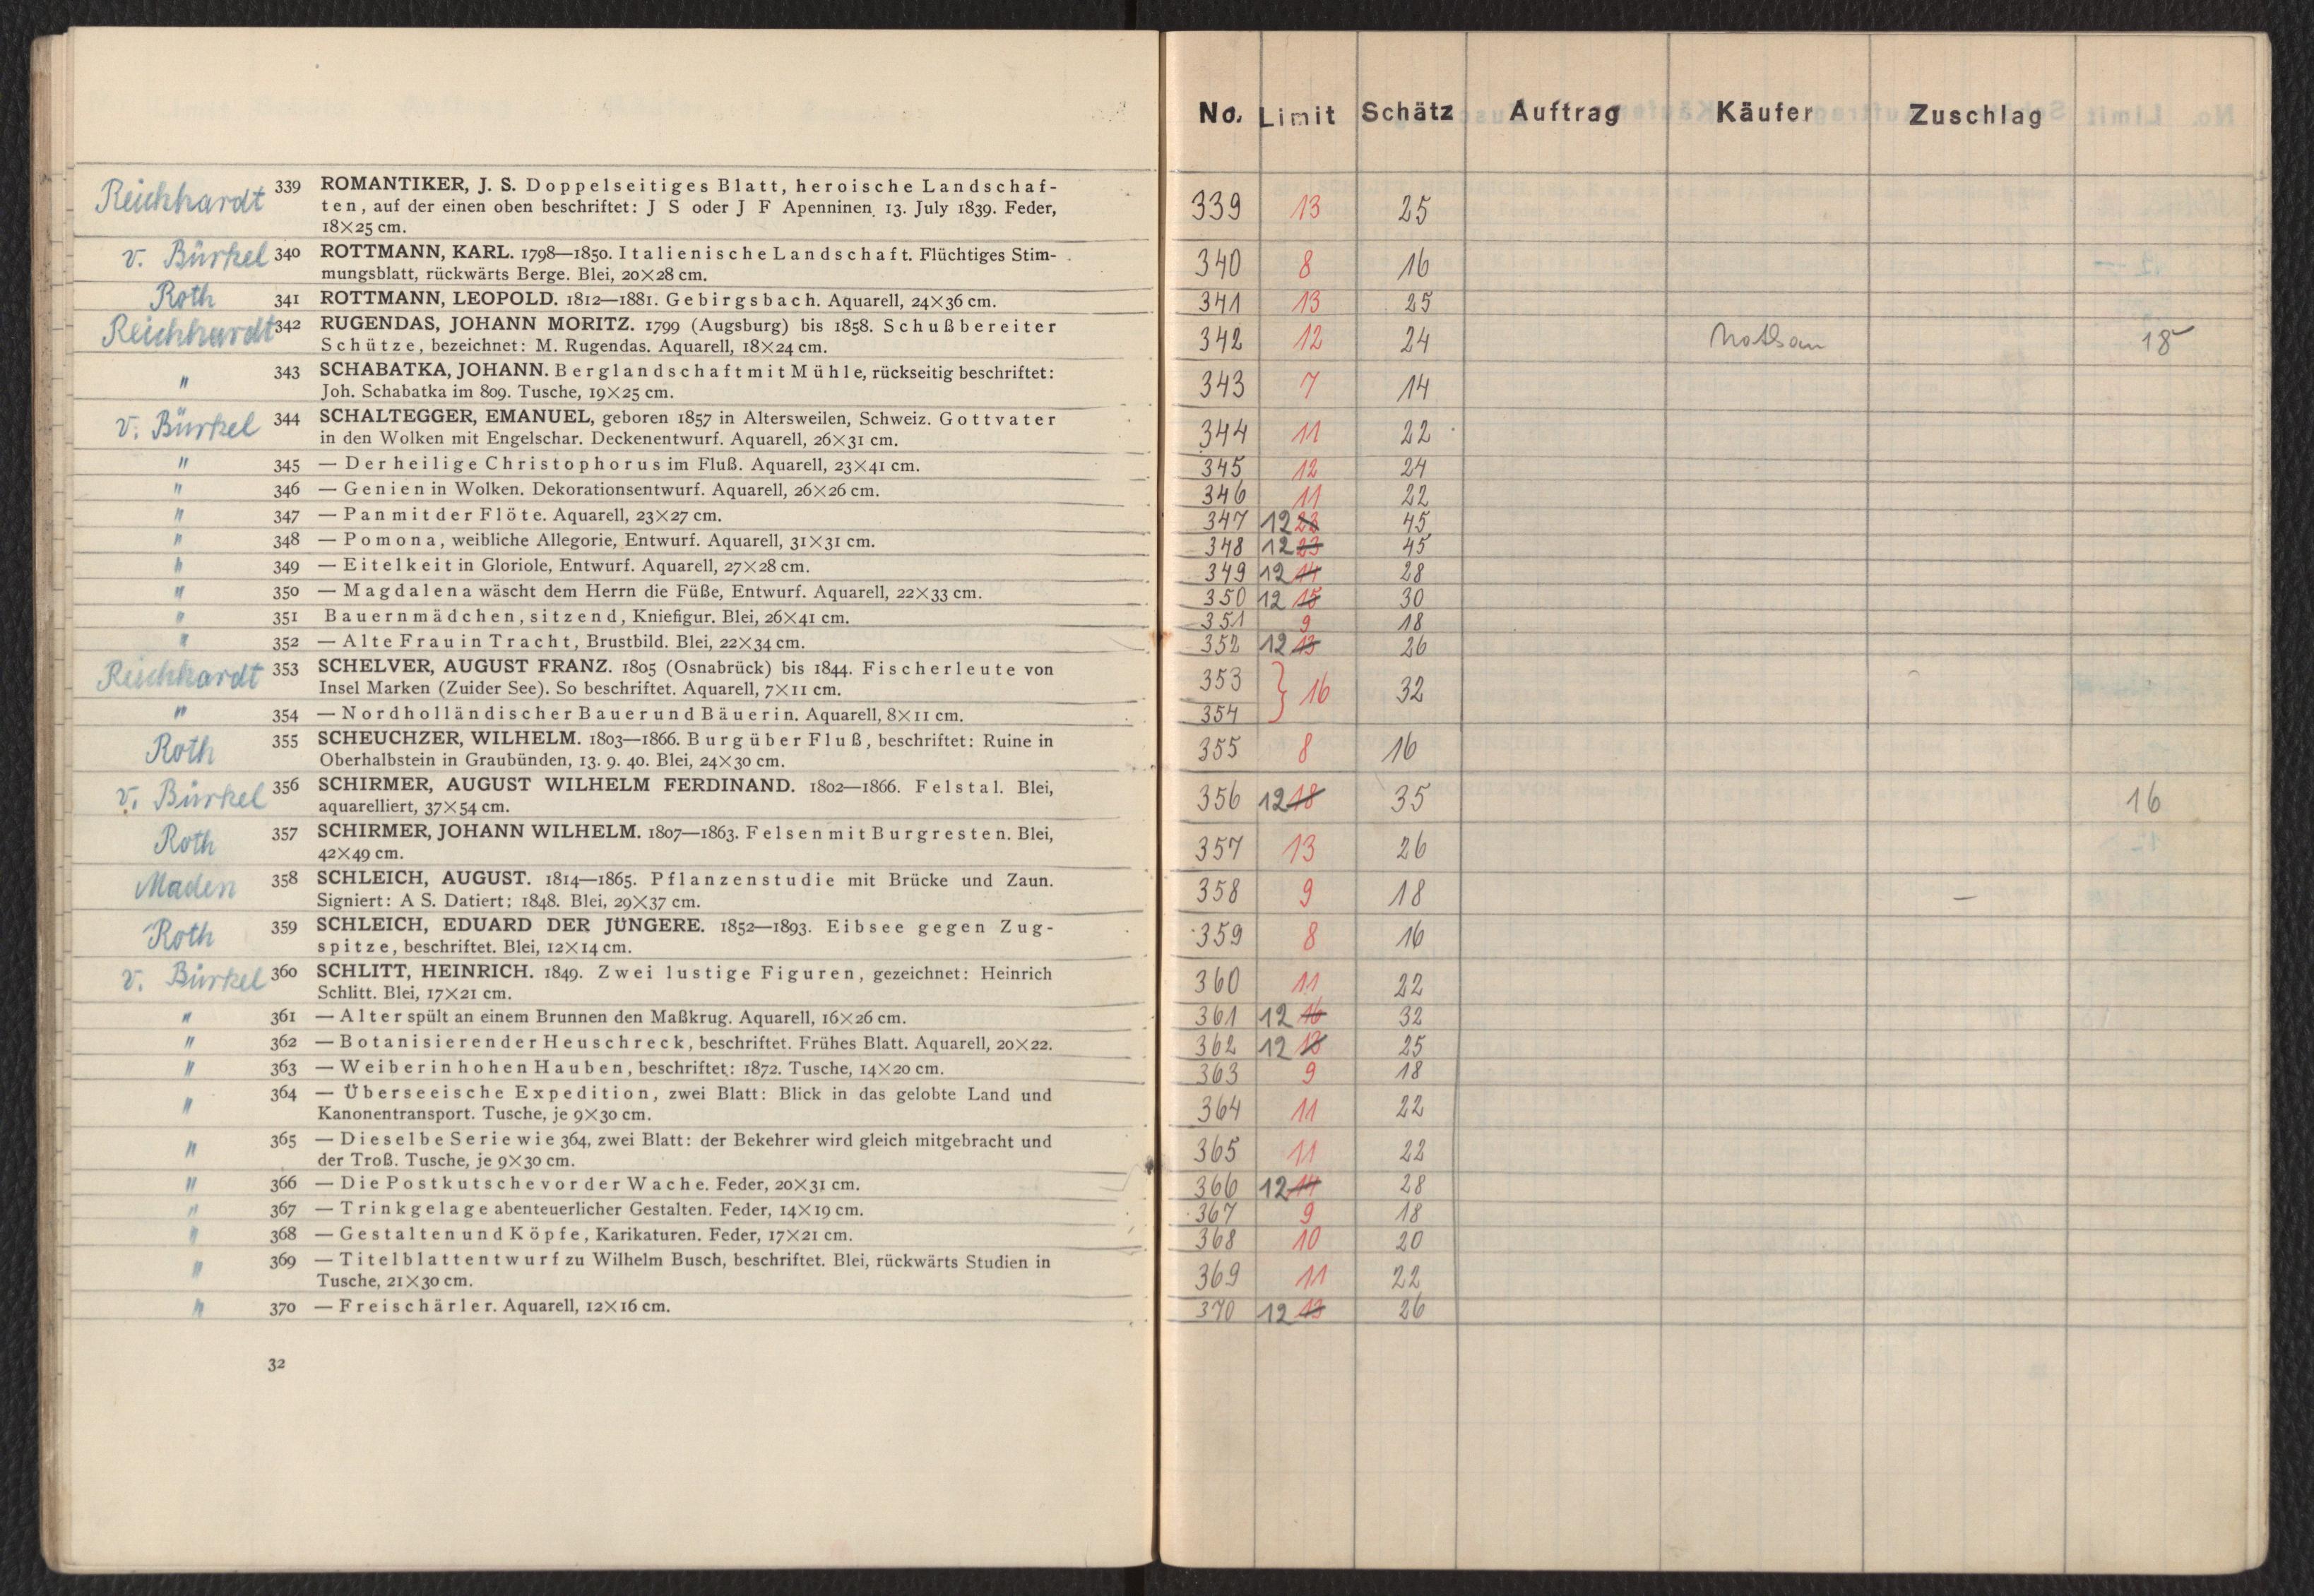 Reichhardt 339 ROMANTIKER, J. S. Doppelseitiges Blatt, heroische Landschaf-
ten, auf der einen oben beschriftet: J S oder J F Apenninen 13. July 1839. Feder,
18×25 cm.
v. Bürkel 340 ROTTMANN, KARL. 1798—1850. Italienische Landschaft. Flüchtiges Stim-
mungsblatt, rückwärts Berge. Blei, 20×28 cm.
Roth 341 ROTTMANN, LEOPOLD. 1812—1881. Gebirgsbach. Aquarell, 24×36 cm.
Reichhardt 342 RUGENDAS, JOHANN MORITZ. 1799 (Augsburg) bis 1858. Schußbereiter
Schütze, bezeichnet: M. Rugendas. Aquarell, 18×24 cm.
" 343 SCHABATKA, JOHANN. Berglandschaft mit Mühle, rückseitig beschriftet:
Joh. Schabatka im 809. Tusche, 19×25 cm.
v. Bürkel 344 SCHALTEGGER, EMANUEL, geboren 1857 in Altersweilen, Schweiz. Gottvater
in den Wolken mit Engelschar. Deckenentwurf. Aquarell, 26×31 cm.
" 345 — Der heilige Christophorus im Fluß. Aquarell, 23×41 cm.
" 346 — Genien in Wolken. Dekorationsentwurf. Aquarell, 26×26 cm.
" 347 — Pan mit der Flöte. Aquarell, 23×27 cm.
" 348 — Pomona, weibliche Allegorie, Entwurf. Aquarell, 31×31 cm.
" 349 — Eitelkeit in Gloriole, Entwurf. Aquarell, 27×28 cm.
" 350 — Magdalena wäscht dem Herrn die Füße, Entwurf. Aquarell, 22×33 cm.
" 351 Bauernmädchen, sitzend, Kniefigur. Blei, 26×41 cm.
" 352 — Alte Frau in Tracht, Brustbild. Blei, 22×34 cm.
Reichhardt 353 SCHELVER, AUGUST FRANZ. 1805 (Osnabrück) bis 1844. Fischerleute von
Insel Marken (Zuider See). So beschriftet. Aquarell, 7×11 cm.
" 354 — Nordholländischer Bauer und Bäuerin. Aquarell, 8×11 cm.
Roth 355 SCHEUCHZER, WILHELM. 1803—1866. Burg über Fluß, beschriftet: Ruine in
Oberhalbstein in Graubünden, 13. 9. 40. Blei, 24×30 cm.
v. Bürkel 356 SCHIRMER, AUGUST WILHELM FERDINAND. 1802—1866. Felstal. Blei,
aquarelliert, 37×54 cm.
Roth 357 SCHIRMER, JOHANN WILHELM. 1807—1863. Felsen mit Burgresten. Blei,
42×49 cm.
Maden 358 SCHLEICH, AUGUST. 1814—1865. Pflanzenstudie mit Brücke und Zaun.
Signiert: A S. Datiert: 1848. Blei, 29×37 cm.
Roth 359 SCHLEICH, EDUARD DER JÜNGERE. 1852—1893. Eibsee gegen Zug-
spitze, beschriftet. Blei, 12×14 cm.
v. Bürkel 360 SCHLITT, HEINRICH. 1849. Zwei lustige Figuren, gezeichnet: Heinrich
Schlitt. Blei, 17×21 cm.
" 361 — Alter spült an einem Brunnen den Maßkrug. Aquarell, 16×26 cm.
" 362 — Botanisierender Heuschreck, beschriftet. Frühes Blatt. Aquarell, 20×22.
" 363 — Weiber in hohen Hauben, beschriftet: 1872. Tusche, 14×20 cm.
" 364 — Überseeische Expedition, zwei Blatt: Blick in das gelobte Land und
Kanonentransport. Tusche, je 9×30 cm.
" 365 — Dieselbe Serie wie 364, zwei Blatt: der Bekehrer wird gleich mitgebracht und
der Troß. Tusche, je 9×30 cm.
" 366 — Die Postkutsche vor der Wache. Feder, 20×31 cm.
" 367 — Trinkgelage abenteuerlicher Gestalten. Feder, 14×19 cm.
" 368 — Gestalten und Köpfe, Karikaturen. Feder, 17×21 cm.
" 369 — Titelblattentwurf zu Wilhelm Busch, beschriftet. Blei, rückwärts Studien in
Tusche, 21×30 cm.
" 370 — Freischärler. Aquarell, 12×16 cm.
32
No. Limit Schätz Auftrag Käufer Zuschlag
339 13 25
340 8 16
341 13 25
342 12 24 Nathan 18
343 7 14
344 11 22
345 12 24
346 11 22
347 12 23 45
348 12 23 45
349 12 14 28
350 12 15 30
351 9 18
352 12 13 26
353 } 16 32
354
355 8 16
356 12 18 35 16
357 13 26
358 9 18 —
359 8 16
360 11 22
361 12 16 32
362 12 13 25
363 9 18
364 11 22
365 11 22
366 12 14 28
367 9 18
368 10 20
369 11 22
370 12 13 26